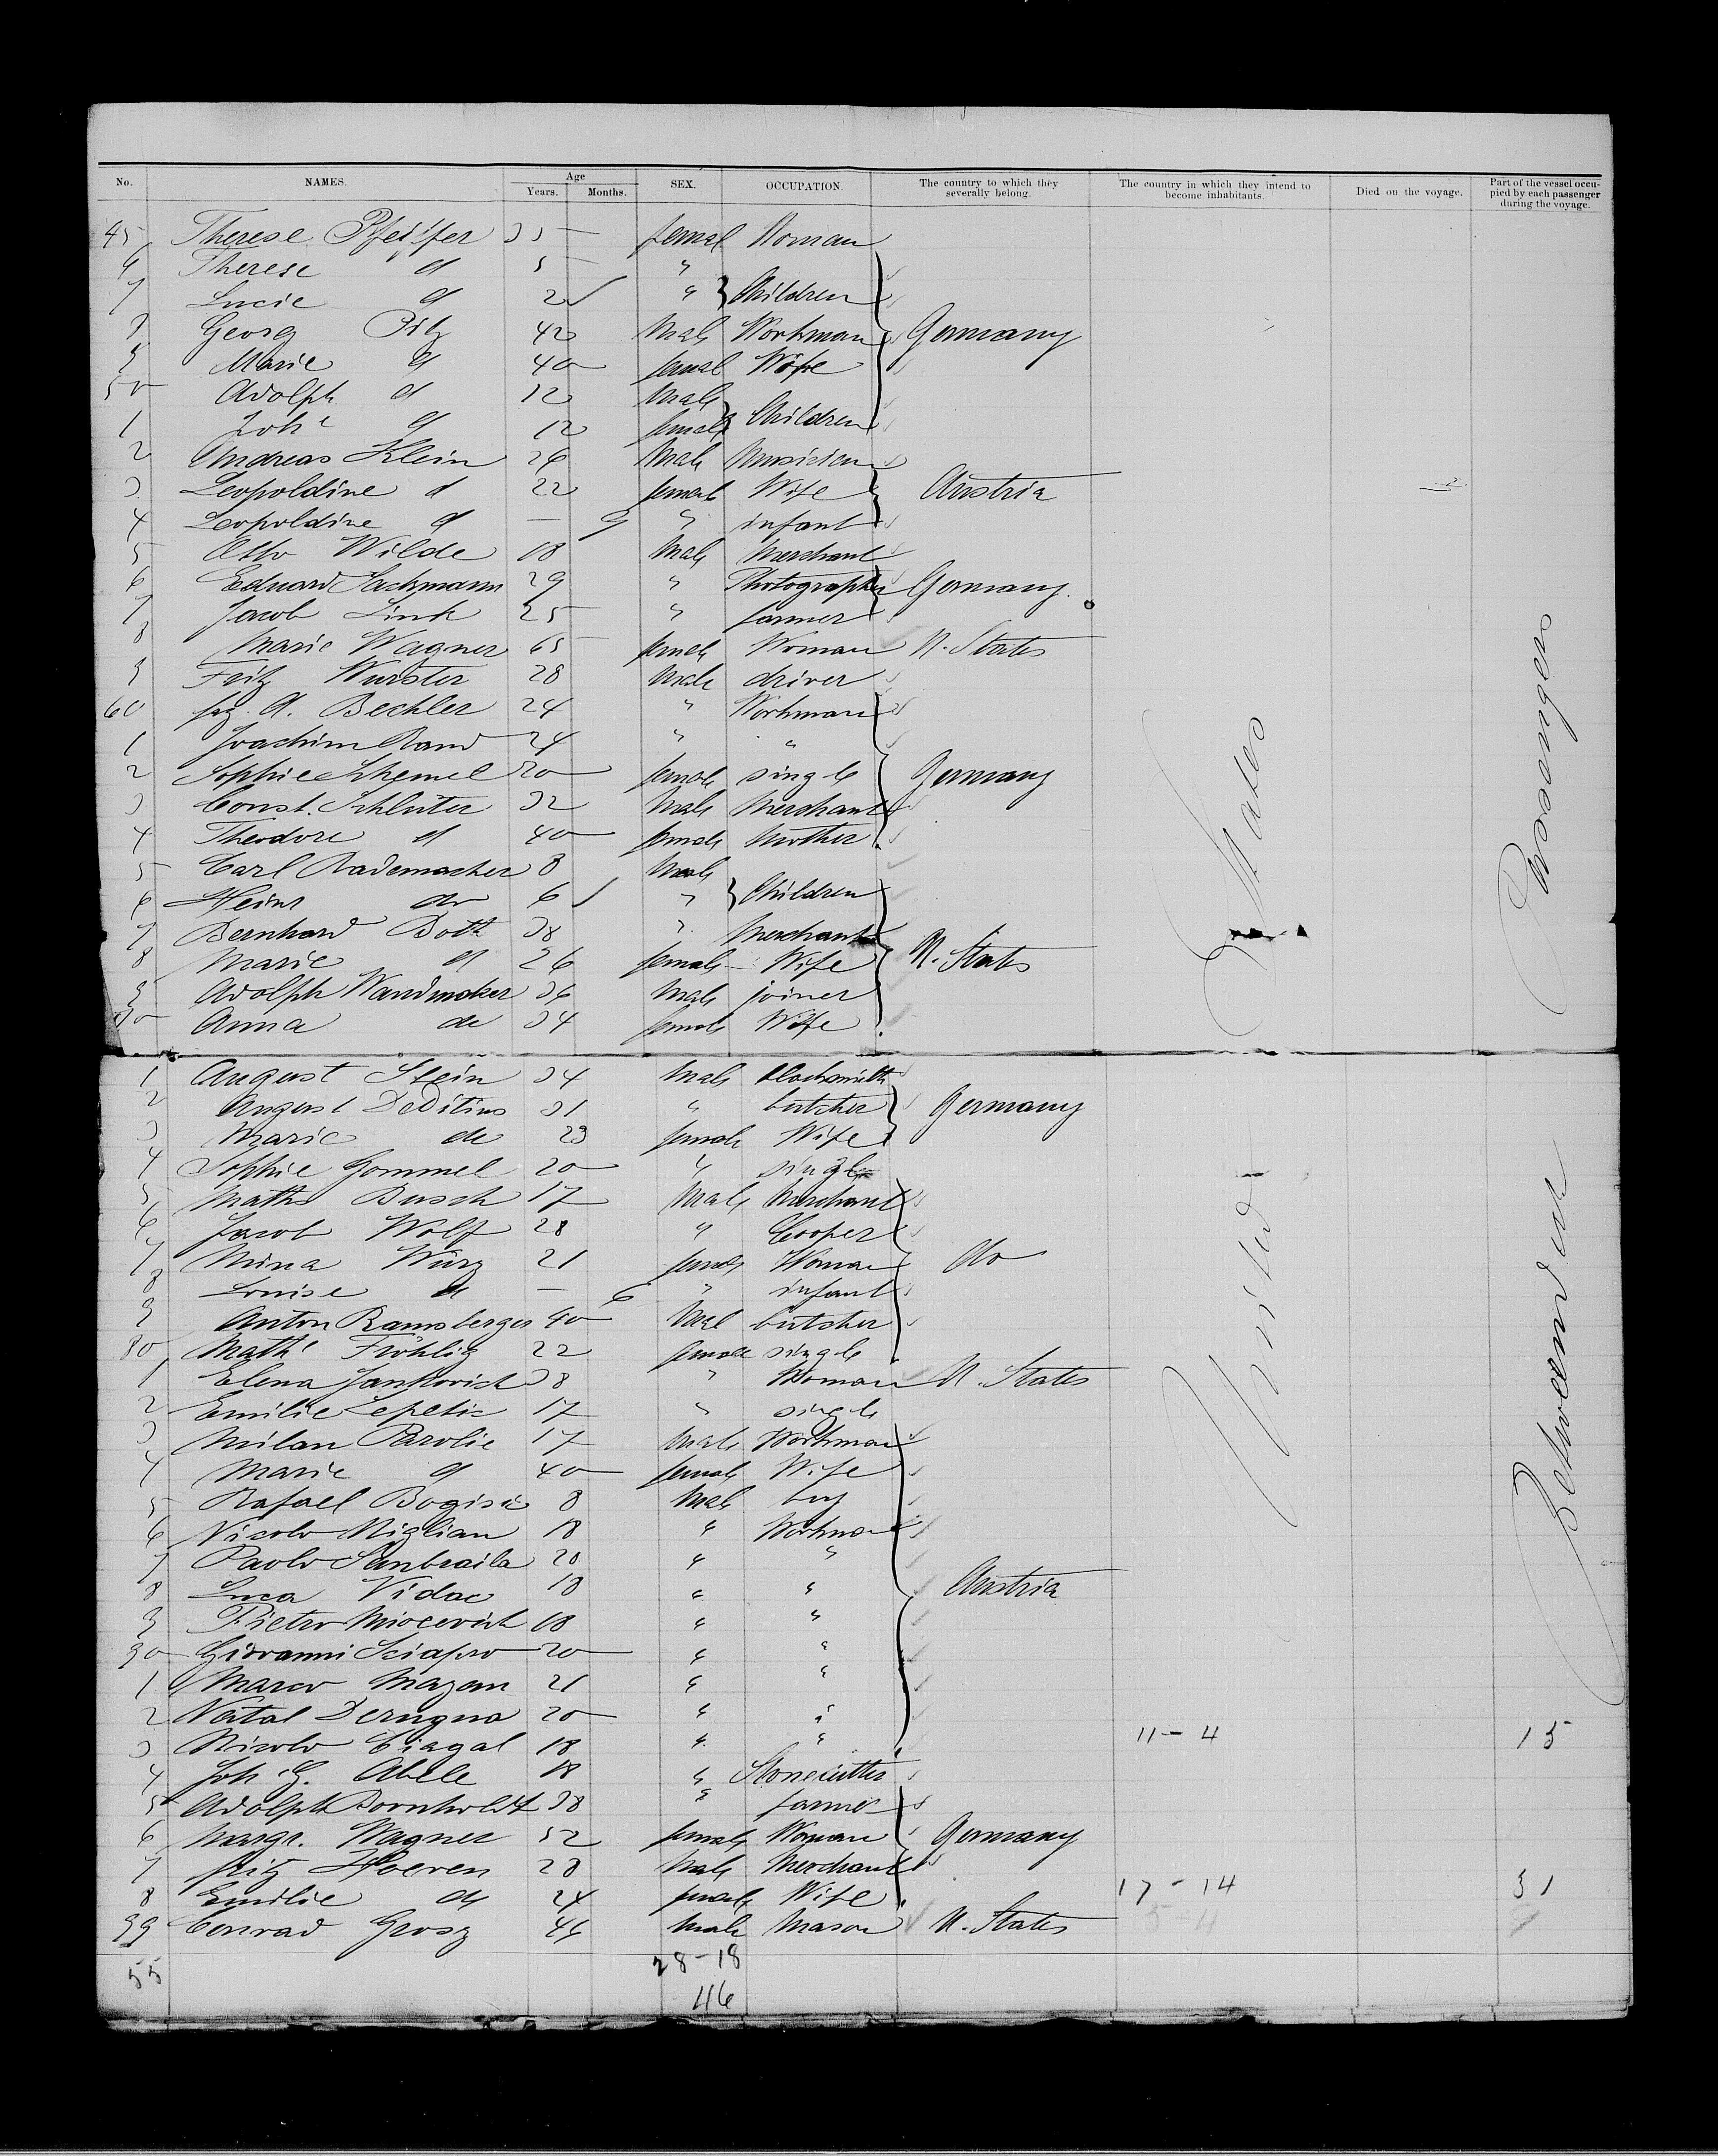 No. NAMES. Age Years. Months. SEX. OCCUPATION. The country to which they severally belong. The country in which they intend to become inhabitants. Died on the voyage. Part of the vessel occupied by each passenger during the voyage.
45 Therese Pfeiffer 35 — femal Woman
6 Therese d 5 — "
7 Lucie d 2 " Children
8 Georg Pilz 42 Male Workman Germany
9 Marie d 40 femal Wife
50 Adolph d 12 Male
1 Joh d 12 female Children
2 Andreas Klein 26 Male Musician
3 Leopoldine d 22 female Wife Austria
4 Leopoldine d — 9 " infant
5 Otto Wilde 18 Male Merchant
6 Eduard Sachmann 29 " Photographer Germany.
7 Jacob Link 25 " farmer
8 Marie Wagner 65 female Woman U. States
9 Fritz Wurster 28 Male driver
60 A. Bechler 24 " Workman
1 Joachim Rand 24 " "
2 Sophie Schemel 20 female single Germany
3 Const. Schlüter 32 Male Merchant
4 Theodore d 40 female Mother
5 Carl Rademacher 8 Male
6 Heinr do 6 " Children
7 Bernhard Both 38 " Merchant
8 Marie d 26 female Wife U. States
9 Adolph Wandmaker 36 Male joiner
70 Anna do 34 female Wife
1 August Stein 34 Male blacksmith
2 August DeDitius 31 " butcher Germany
3 Marie do 29 female Wife
4 Sophie Gommel 20 " single
5 Maths Busch 17 Male Merchant
6 Jacob Wolf 28 " Cooper
7 Mina Wurz 21 female Woman do
8 Louise d — 6 " infant
9 Anton Ramsberger 40 Mal butcher
80 Math Fröhlig 22 female single
1 Elena Jankovich 38 " Woman U. States
2 Emilie Lepetic 17 " single
3 Milan Parolie 17 Male Workman
4 Marie d 40 female Wife
5 Rafael Bogisic 8 Male boy
6 Nicolo Miglian 18 " Workman
7 Paolo Sanbraila 20 " "
8 Luca Vidac 18 " " Austria
9 Pietro Miocevich 18 " "
90 Giovanni Sciapro 20 " "
1 Marco Mazan 21 " "
2 Natal Derugna 20 " "
3 Nicolo Ciagal 18 " " 11 - 4 15
4 Joh G. Abele 18 " Stonecutter
5 Adolph Bornholdt 38 " farmer
6 Margr. Wagner 52 female Woman Germany
7 Fritz Hoeven 28 Male Merchant
8 Emilie do 24 female Wife 17 - 14 31
99 Conrad Grosz 44 Male Mason U. States 5-4 9
55 28-18
46
United States
Betweendeck Passengers